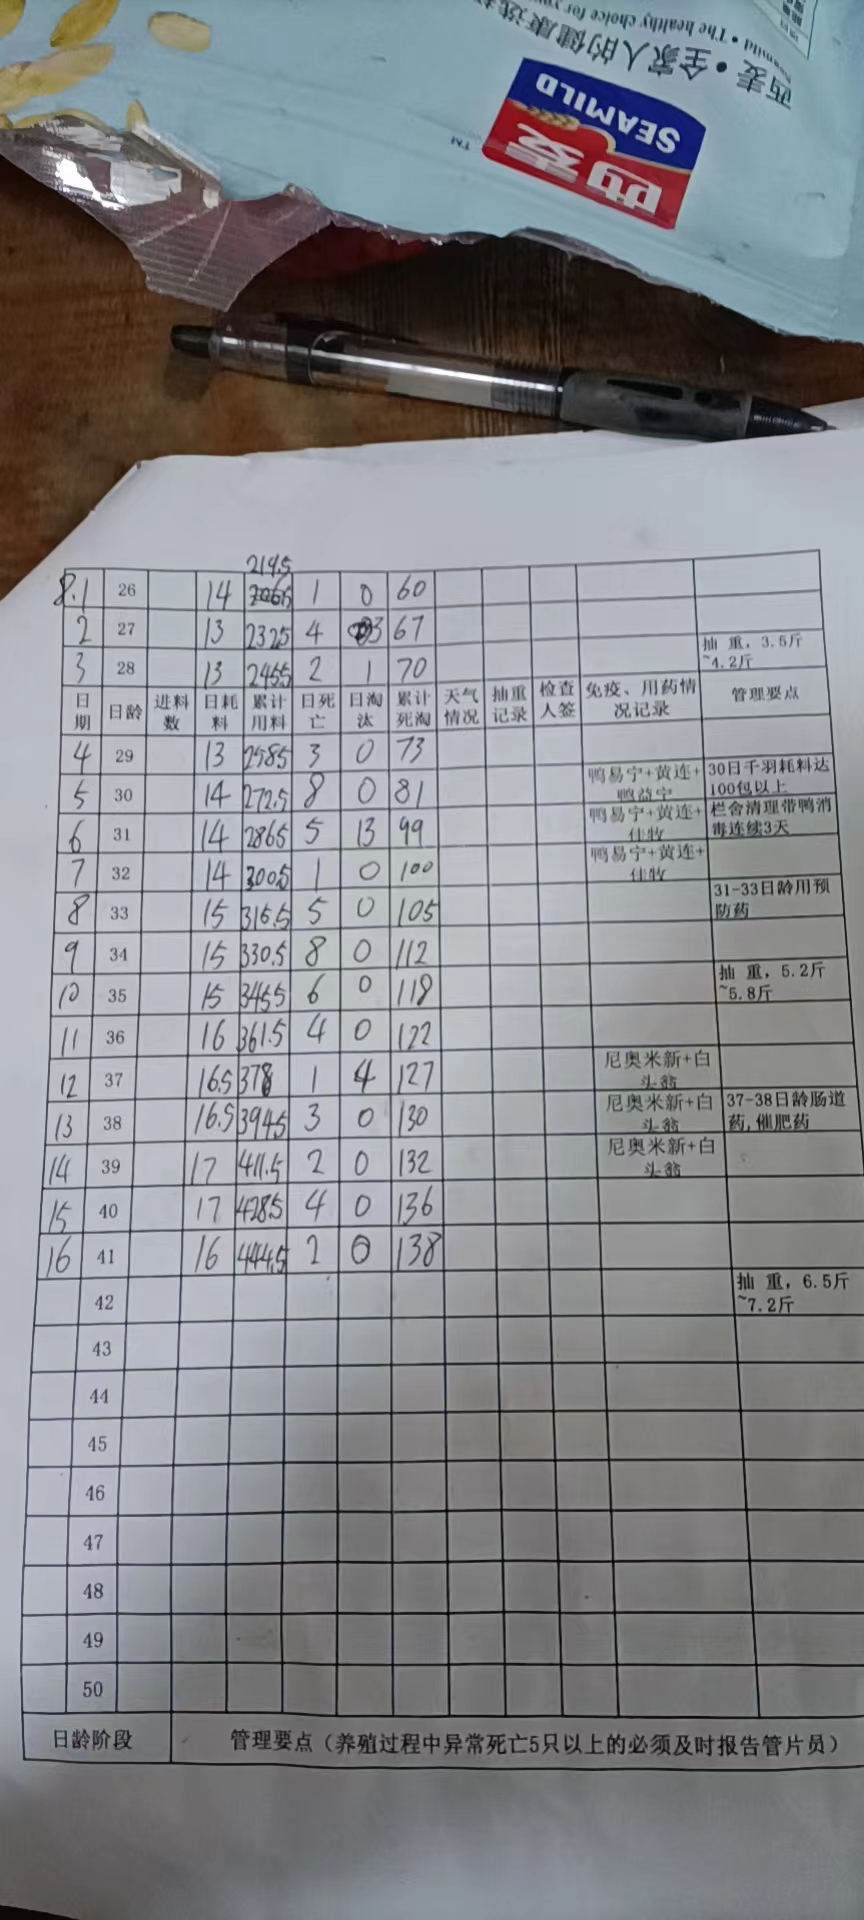 西麦
SEAMILD
TM
西麦 • 全家人的健康选择
Seamild • The healthy choice for your
8.1 26 14 219.5 1 0 60
2 27 13 232.5 4 3 67
3 28 13 245.5 2 1 70 抽 重，3.5斤~4.2斤
日期 日龄 进料数 日耗料 累计用料 日死亡 日淘汰 累计死淘 天气情况 抽重记录 检查人签 免疫、用药情况记录 管理要点
4 29 13 258.5 3 0 73
5 30 14 272.5 8 0 81 鸭易宁+黄连+鸭益宁 30日千羽耗料达100包以上
6 31 14 286.5 5 13 99 鸭易宁+黄连+佳牧 栏舍清理带鸭消毒连续3天
7 32 14 300.5 1 0 100 鸭易宁+黄连+佳牧
8 33 15 315.5 5 0 105 31-33日龄用预防药
9 34 15 330.5 8 0 112
10 35 15 345.5 6 0 118 抽 重，5.2斤~5.8斤
11 36 16 361.5 4 0 122
12 37 16.5 378 1 4 127 尼奥米新+白头翁
13 38 16.5 394.5 3 0 130 尼奥米新+白头翁 37-38日龄肠道药,催肥药
14 39 17 411.5 2 0 132 尼奥米新+白头翁
15 40 17 428.5 4 0 136
16 41 16 444.5 2 0 138
42 抽 重，6.5斤~7.2斤
43
44
45
46
47
48
49
50
日龄阶段 管理要点（养殖过程中异常死亡5只以上的必须及时报告管片员）